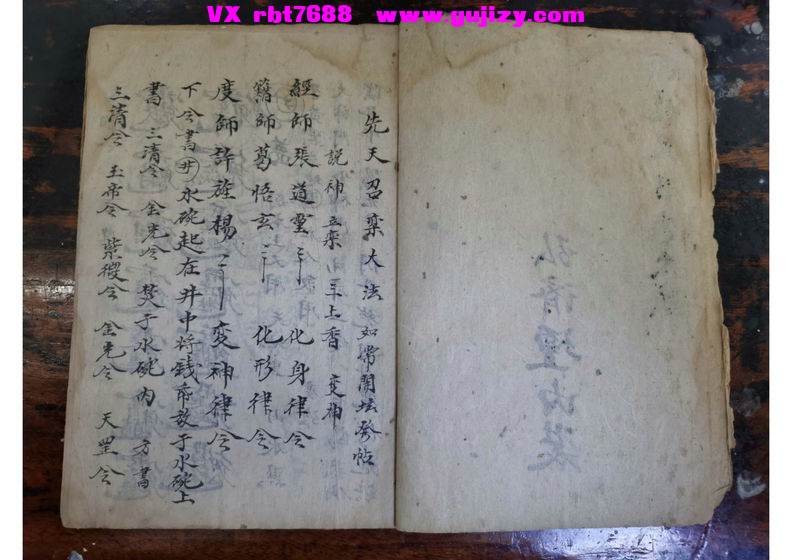 VX rbt7688 www.gujizy.com
先天召栾大法如常開坛發帖
說神立栾 三上香 变神
經師張道霊 化身律令
籍師葛悟玄 化形律令
度師許旌楊 変神律令
下令書井水碗起在井中将錢帋放于水碗上
書 三清令 金光令 焚于水碗内 方書
三清令 玉帝令 紫微令 金光令 天罡令